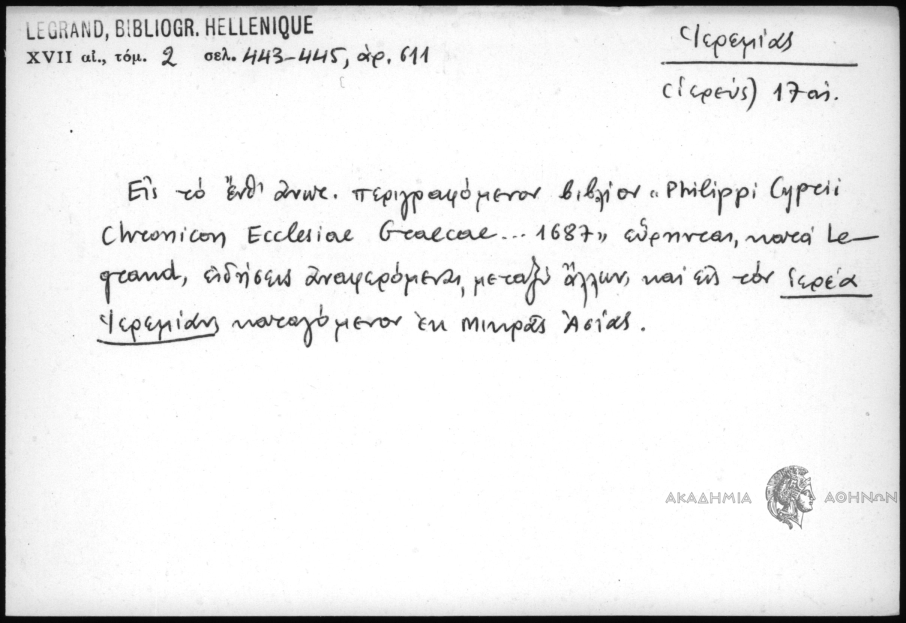 LEGRAND, BIBLIOGR. HELLENIQUE
XVII αἰ., τόμ. 2 σελ. 443-445, ἀρ. 611
Ἱερεμίας
(ἱερεύς) 17 αἰ.
Εἰς τὸ ἔνθ' ἄνωτ. περιγραφόμενον βιβλίον «Philippi Cyprii
Chronicon Ecclesiae Graecae... 1687» εὕρηνται, κατὰ Le-
grand, εἰδήσεις ἀναφερόμεναι, μεταξὺ ἄλλων, καὶ εἰς τὸν ἱερέα
Ἱερεμίαν καταγόμενον ἐκ Μικρᾶς Ἀσίας.
ΑΚΑΔΗΜΙΑ ΑΘΗΝΩΝ